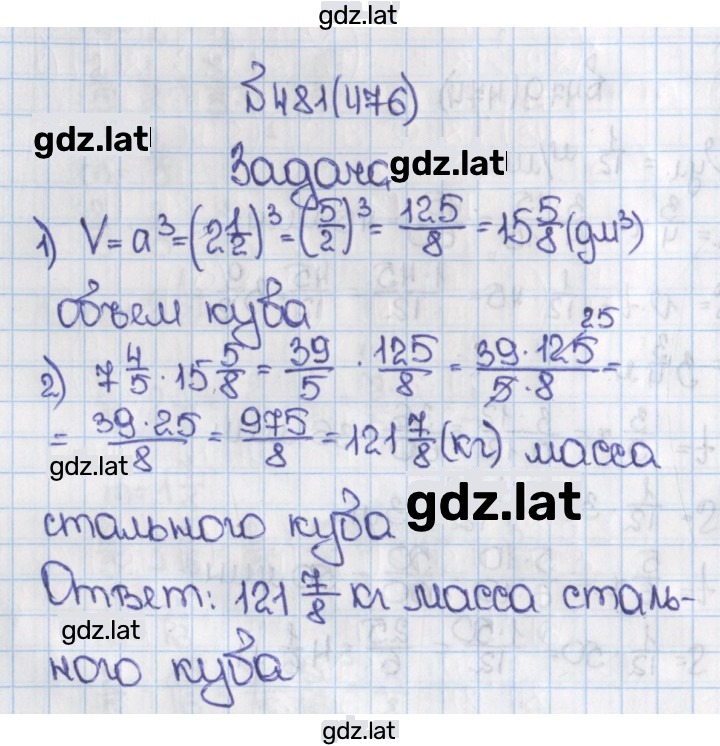 gdz.lat
№481(476)
gdz.lat
Задача
gdz.lat
1) V = a³ = (2 1/2)³ = (5/2)³ = 125/8 = 15 5/8 (дм³)
объем куба
2) 7 4/5 · 15 5/8 = 39/5 · 125/8 = 39·125/5·8 =
25
= 39·25/8 = 975/8 = 121 7/8 (кг) масса
gdz.lat
стального куба
gdz.lat
Ответ: 121 7/8 кг масса сталь-
gdz.lat
ного куба
gdz.lat